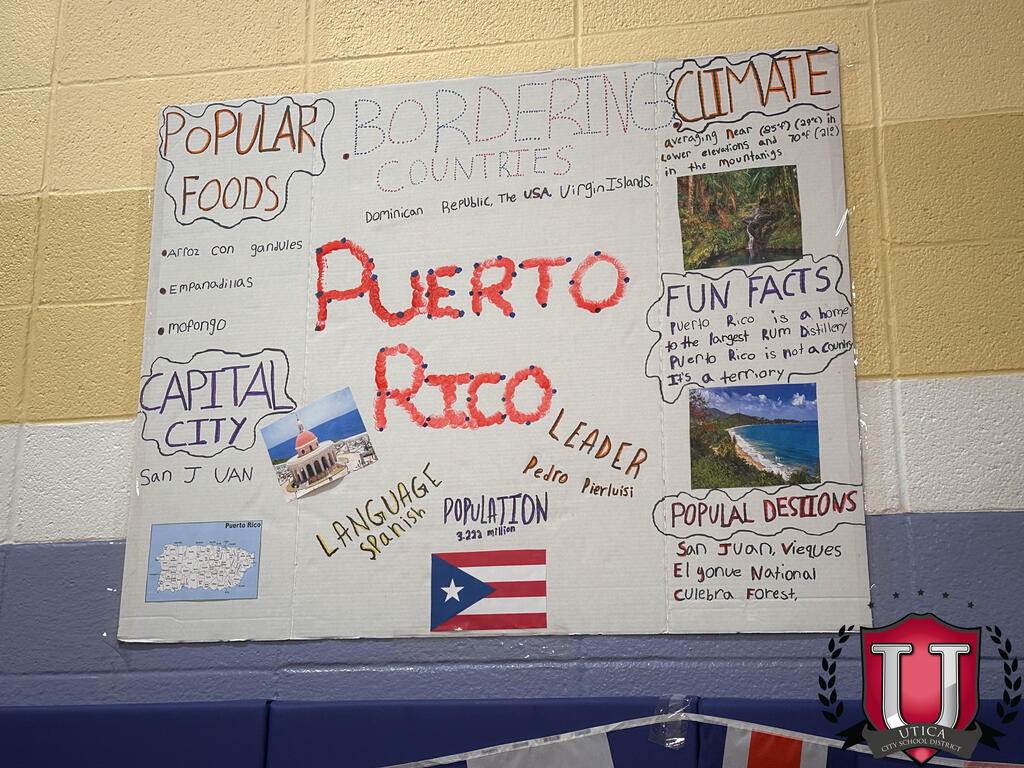 POPULAR
FOODS
•Arroz con gandules
•Empanadillas
•mofongo
CAPITAL
CITY
San JUAN
Puerto Rico
•BORDERING
COUNTRIES
Dominican Republic, The USA Virgin Islands.
PUERTO
RICO
LANGUAGE
Spanish
POPULATION
3.222 million
LEADER
Pedro Pierluisi
CLIMATE
•averaging near (85°f) (29°c) in
Lower elevations and 70°f (21°)
in the mountanigs
FUN FACTS
Puerto Rico is a home
to the largest Rum Distillery
Puerto Rico is not a country
It's a terriory
POPULAL DESTIONS
San Juan, Vieques
El yonue National
Culebra Forest,
U
UTICA
CITY SCHOOL DISTRICT